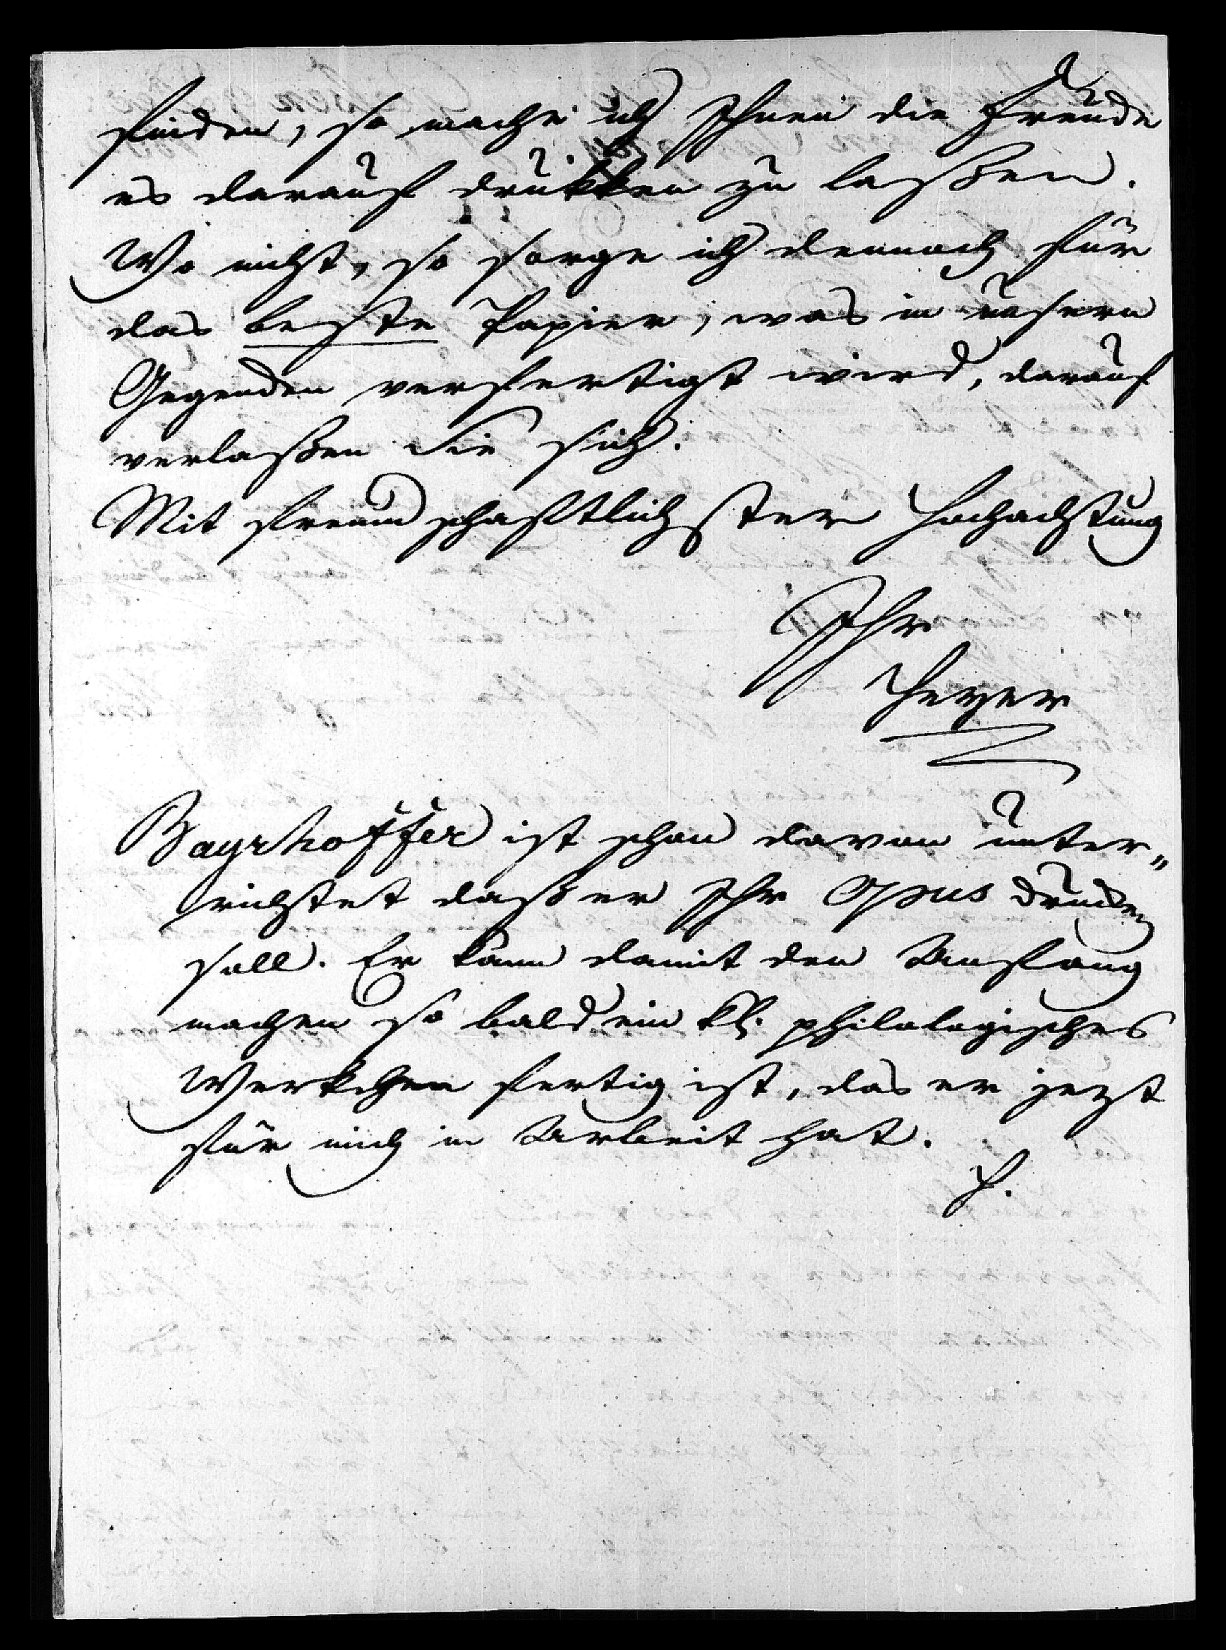 finden, so mache ich Ihnen die Freude
es darauf drukken zu laßen.
Wo nicht, so sorge ich dennoch für
das beste Papier, was in unsern
Gegenden verfertigt wird, darauf
verlaßen Sie sich.
Mit freundschaftlichster Hochachtung
Ihr
Heyer
Bayrhoffer ist schon davon unter„
richtet daß er Ihr Opus drucken
soll. Er kann damit den Anfang
machen so bald ein kl. philologisches
Werkchen fertig ist, das er jezt
für mich in Arbeit hat.
H.